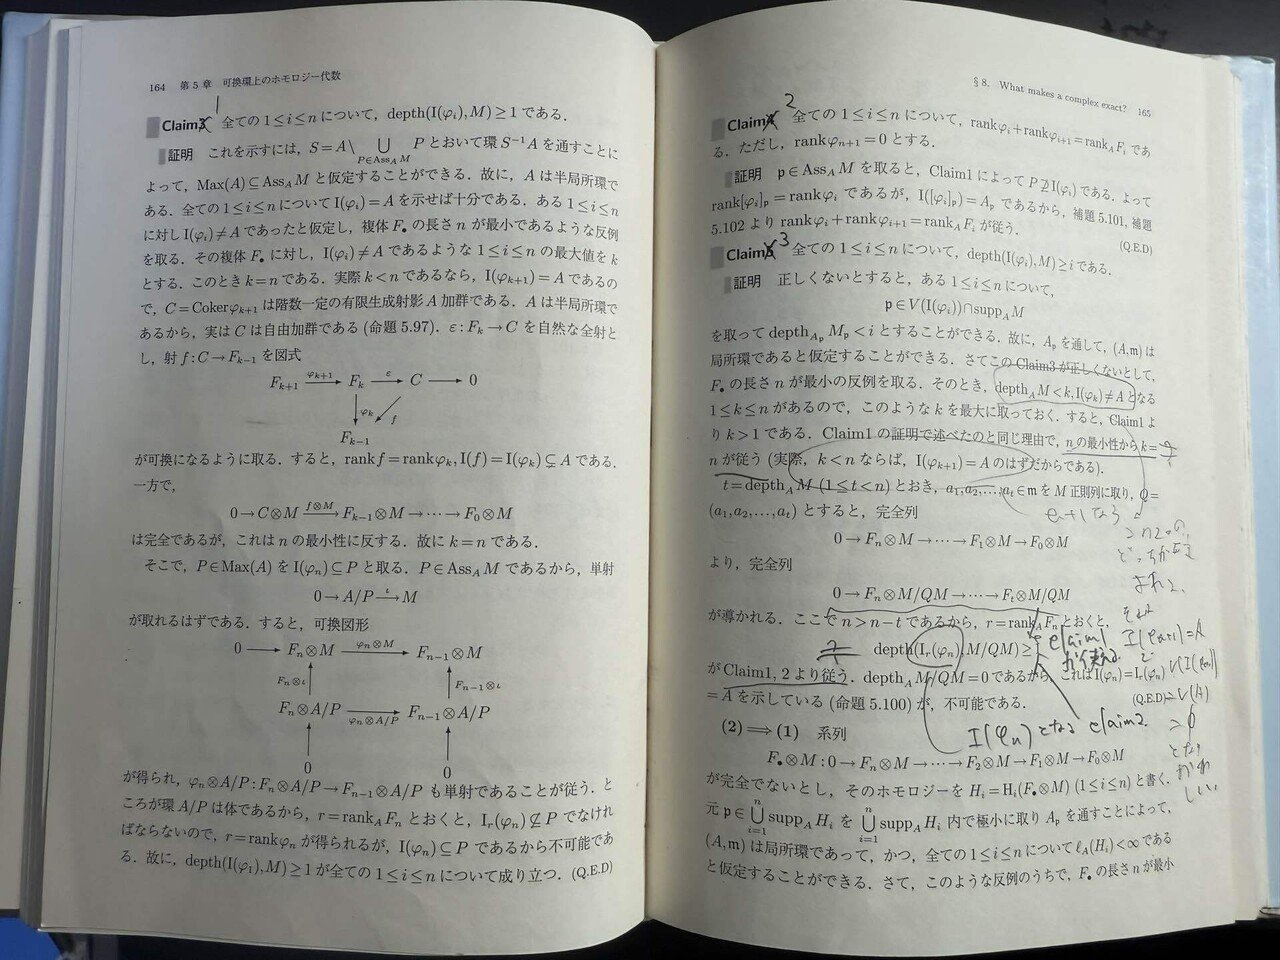 164 第5章 可換環上のホモロジー代数
1
Claim3 全ての 1≤i≤n について, depth(I(φᵢ), M)≥1 である.
証明 これを示すには, S=A\ ⋃ P とおいて環 S⁻¹A を通すことに
P∈Ass_A M
よって, Max(A)⊆Ass_A M と仮定することができる. 故に, A は半局所環で
ある. 全ての 1≤i≤n について I(φᵢ)=A を示せば十分である. ある 1≤i≤n
に対し I(φᵢ)≠A であったと仮定し, 複体 F• の長さ n が最小であるような反例
を取る. その複体 F• に対し, I(φᵢ)≠A であるような 1≤i≤n の最大値を k
とする. このとき k=n である. 実際 k<n であるなら, I(φₖ₊₁)=A であるの
で, C=Coker φₖ₊₁ は階数一定の有限生成射影 A 加群である. A は半局所環で
あるから, 実は C は自由加群である (命題 5.97). ε:Fₖ→C を自然な全射と
し, 射 f:C→Fₖ₋₁ を図式
Fₖ₊₁ —φₖ₊₁→ Fₖ —ε→ C → 0
φₖ f
Fₖ₋₁
が可換になるように取る. すると, rank f=rank φₖ, I(f)=I(φₖ)⊊A である.
一方で,
0→C⊗M —f⊗M→ Fₖ₋₁⊗M→⋯→F₀⊗M
は完全であるが, これは n の最小性に反する. 故に k=n である.
そこで, P∈Max(A) を I(φₙ)⊆P と取る. P∈Ass_A M であるから, 単射
0→A/P —ι→ M
が取れるはずである. すると, 可換図形
0 → Fₙ⊗M —φₙ⊗M→ Fₙ₋₁⊗M
Fₙ⊗ι Fₙ₋₁⊗ι
Fₙ⊗A/P —φₙ⊗A/P→ Fₙ₋₁⊗A/P
0 0
が得られ, φₙ⊗A/P:Fₙ⊗A/P→Fₙ₋₁⊗A/P も単射であることが従う. と
ころが環 A/P は体であるから, r=rank_A Fₙ とおくと, Iᵣ(φₙ)⊈P でなけれ
ばならないので, r=rank φₙ が得られるが, I(φₙ)⊆P であるから不可能であ
る. 故に, depth(I(φᵢ), M)≥1 が全ての 1≤i≤n について成り立つ. (Q.E.D)
§8. What makes a complex exact? 165
2
Claim4 全ての 1≤i≤n について, rank φᵢ+rank φᵢ₊₁=rank_A Fᵢ であ
る. ただし, rank φₙ₊₁=0 とする.
証明 p∈Ass_A M を取ると, Claim1 によって P⊉I(φᵢ) である. よって
rank[φᵢ]ₚ=rank φᵢ であるが, I([φᵢ]ₚ)=Aₚ であるから, 補題 5.101, 補題
5.102 より rank φᵢ+rank φᵢ₊₁=rank_A Fᵢ が従う. (Q.E.D)
3
Claim 全ての 1≤i≤n について, depth(I(φᵢ), M)≥i である.
証明 正しくないとすると, ある 1≤i≤n について,
p∈V(I(φᵢ))∩supp_A M
を取って depth_Aₚ Mₚ<i とすることができる. 故に, Aₚ を通して, (A,m) は
局所環であると仮定することができる. さてこの Claim3 が正しくないとして,
F• の長さ n が最小の反例を取る. そのとき, depth_A M<k, I(φₖ)≠A となる
1≤k≤n があるので, このような k を最大に取っておく. すると, Claim1 よ
り k>1 である. Claim1 の証明で述べたのと同じ理由で, n の最小性から k=
n が従う (実際, k<n ならば, I(φₖ₊₁)=A のはずだからである).
t=depth_A M (1≤t<n) とおき, a₁,a₂,…,aₜ∈m を M 正則列に取り, Q=
(a₁,a₂,…,aₜ) とすると, 完全列
0→Fₙ⊗M→⋯→F₁⊗M→F₀⊗M
より, 完全列
0→Fₙ⊗M/QM→⋯→Fₜ⊗M/QM
が導かれる. ここで n>n−t であるから, r=rank_A Fₙ とおくと,
depth(Iᵣ(φₙ), M/QM)≥1
claim1
が Claim1, 2 より従う. depth_A M/QM=0 であるから, これは I(φₙ)=Iᵣ(φₙ)
=A を示している (命題 5.100) が, 不可能である. (Q.E.D)
I(φₙ) となる claim2
(2)⟹(1) 系列
F•⊗M:0→Fₙ⊗M→⋯→F₂⊗M→F₁⊗M→F₀⊗M
が完全でないとし, そのホモロジーを Hᵢ=Hᵢ(F•⊗M) (1≤i≤n) と書く.
元 p∈⋃ⁿᵢ₌₁ supp_A Hᵢ を ⋃ⁿᵢ₌₁ supp_A Hᵢ 内で極小に取り Aₚ を通すことによって,
(A,m) は局所環であって, かつ, 全ての 1≤i≤n について ℓ_A(Hᵢ)<∞ である
と仮定することができる. さて, このような反例のうちで, F• の長さ n が最小